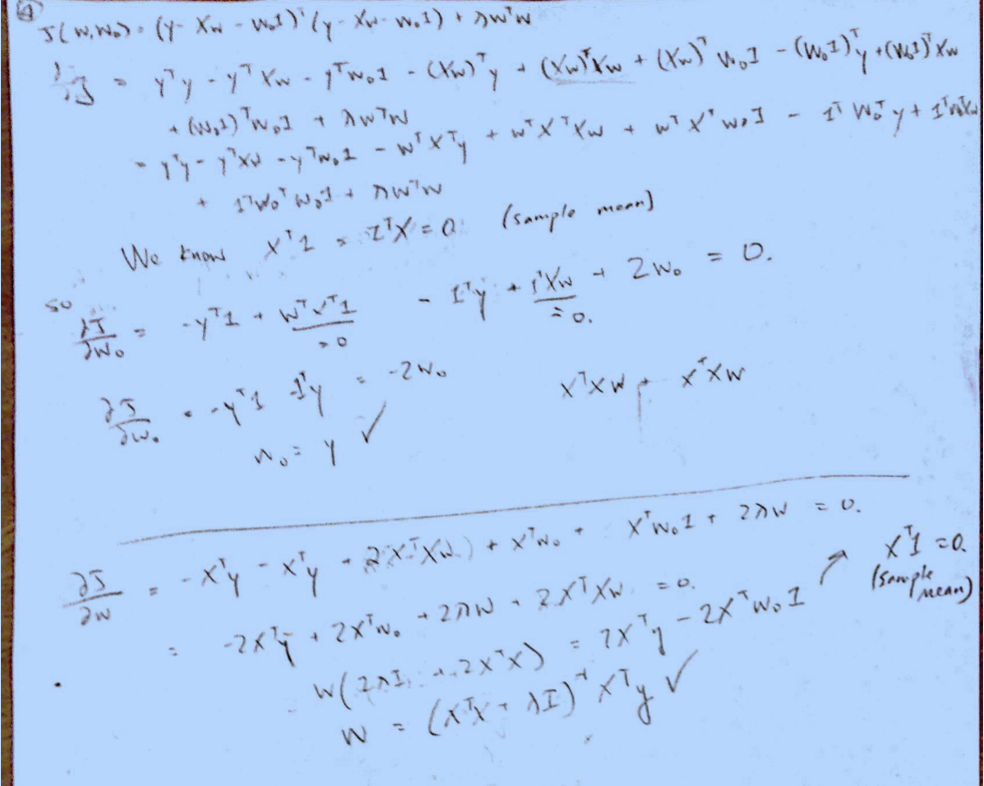 ④
J(w, w₀) = (y - Xw - w₀1)ᵀ(y - Xw - w₀1) + λwᵀw
∂J = yᵀy - yᵀXw - yᵀw₀1 - (Xw)ᵀy + (Xw)ᵀXw + (Xw)ᵀw₀1 - (w₀1)ᵀy + (w₀1)ᵀXw
+ (w₀1)ᵀw₀1 + λwᵀw
= yᵀy - yᵀXw - yᵀw₀1 - wᵀXᵀy + wᵀXᵀXw + wᵀXᵀw₀1 - 1ᵀw₀ᵀy + 1ᵀw₀ᵀXw
+ 1ᵀw₀ᵀw₀1 + λwᵀw
We know Xᵀ1 = 1ᵀX = 0 (sample mean)
so ∂J/∂w₀ = -yᵀ1 + wᵀxᵀ1 - 1ᵀy + 1ᵀXw + 2w₀ = 0.
= 0 = 0.
∂J/∂w₀ = -yᵀ1 - 1ᵀy = -2w₀
XᵀXw + XᵀXw
w₀ = y ✓
∂J/∂w = -Xᵀy - Xᵀy + 2XᵀXw + Xᵀw₀ + Xᵀw₀1 + 2λw = 0.
Xᵀ1 = 0.
(sample mean)
= -2Xᵀy + 2Xᵀw₀ + 2λw + 2XᵀXw = 0.
w(2λI + 2XᵀX) = 2Xᵀy - 2Xᵀw₀1
w = (XᵀX + λI)⁻¹Xᵀy ✓